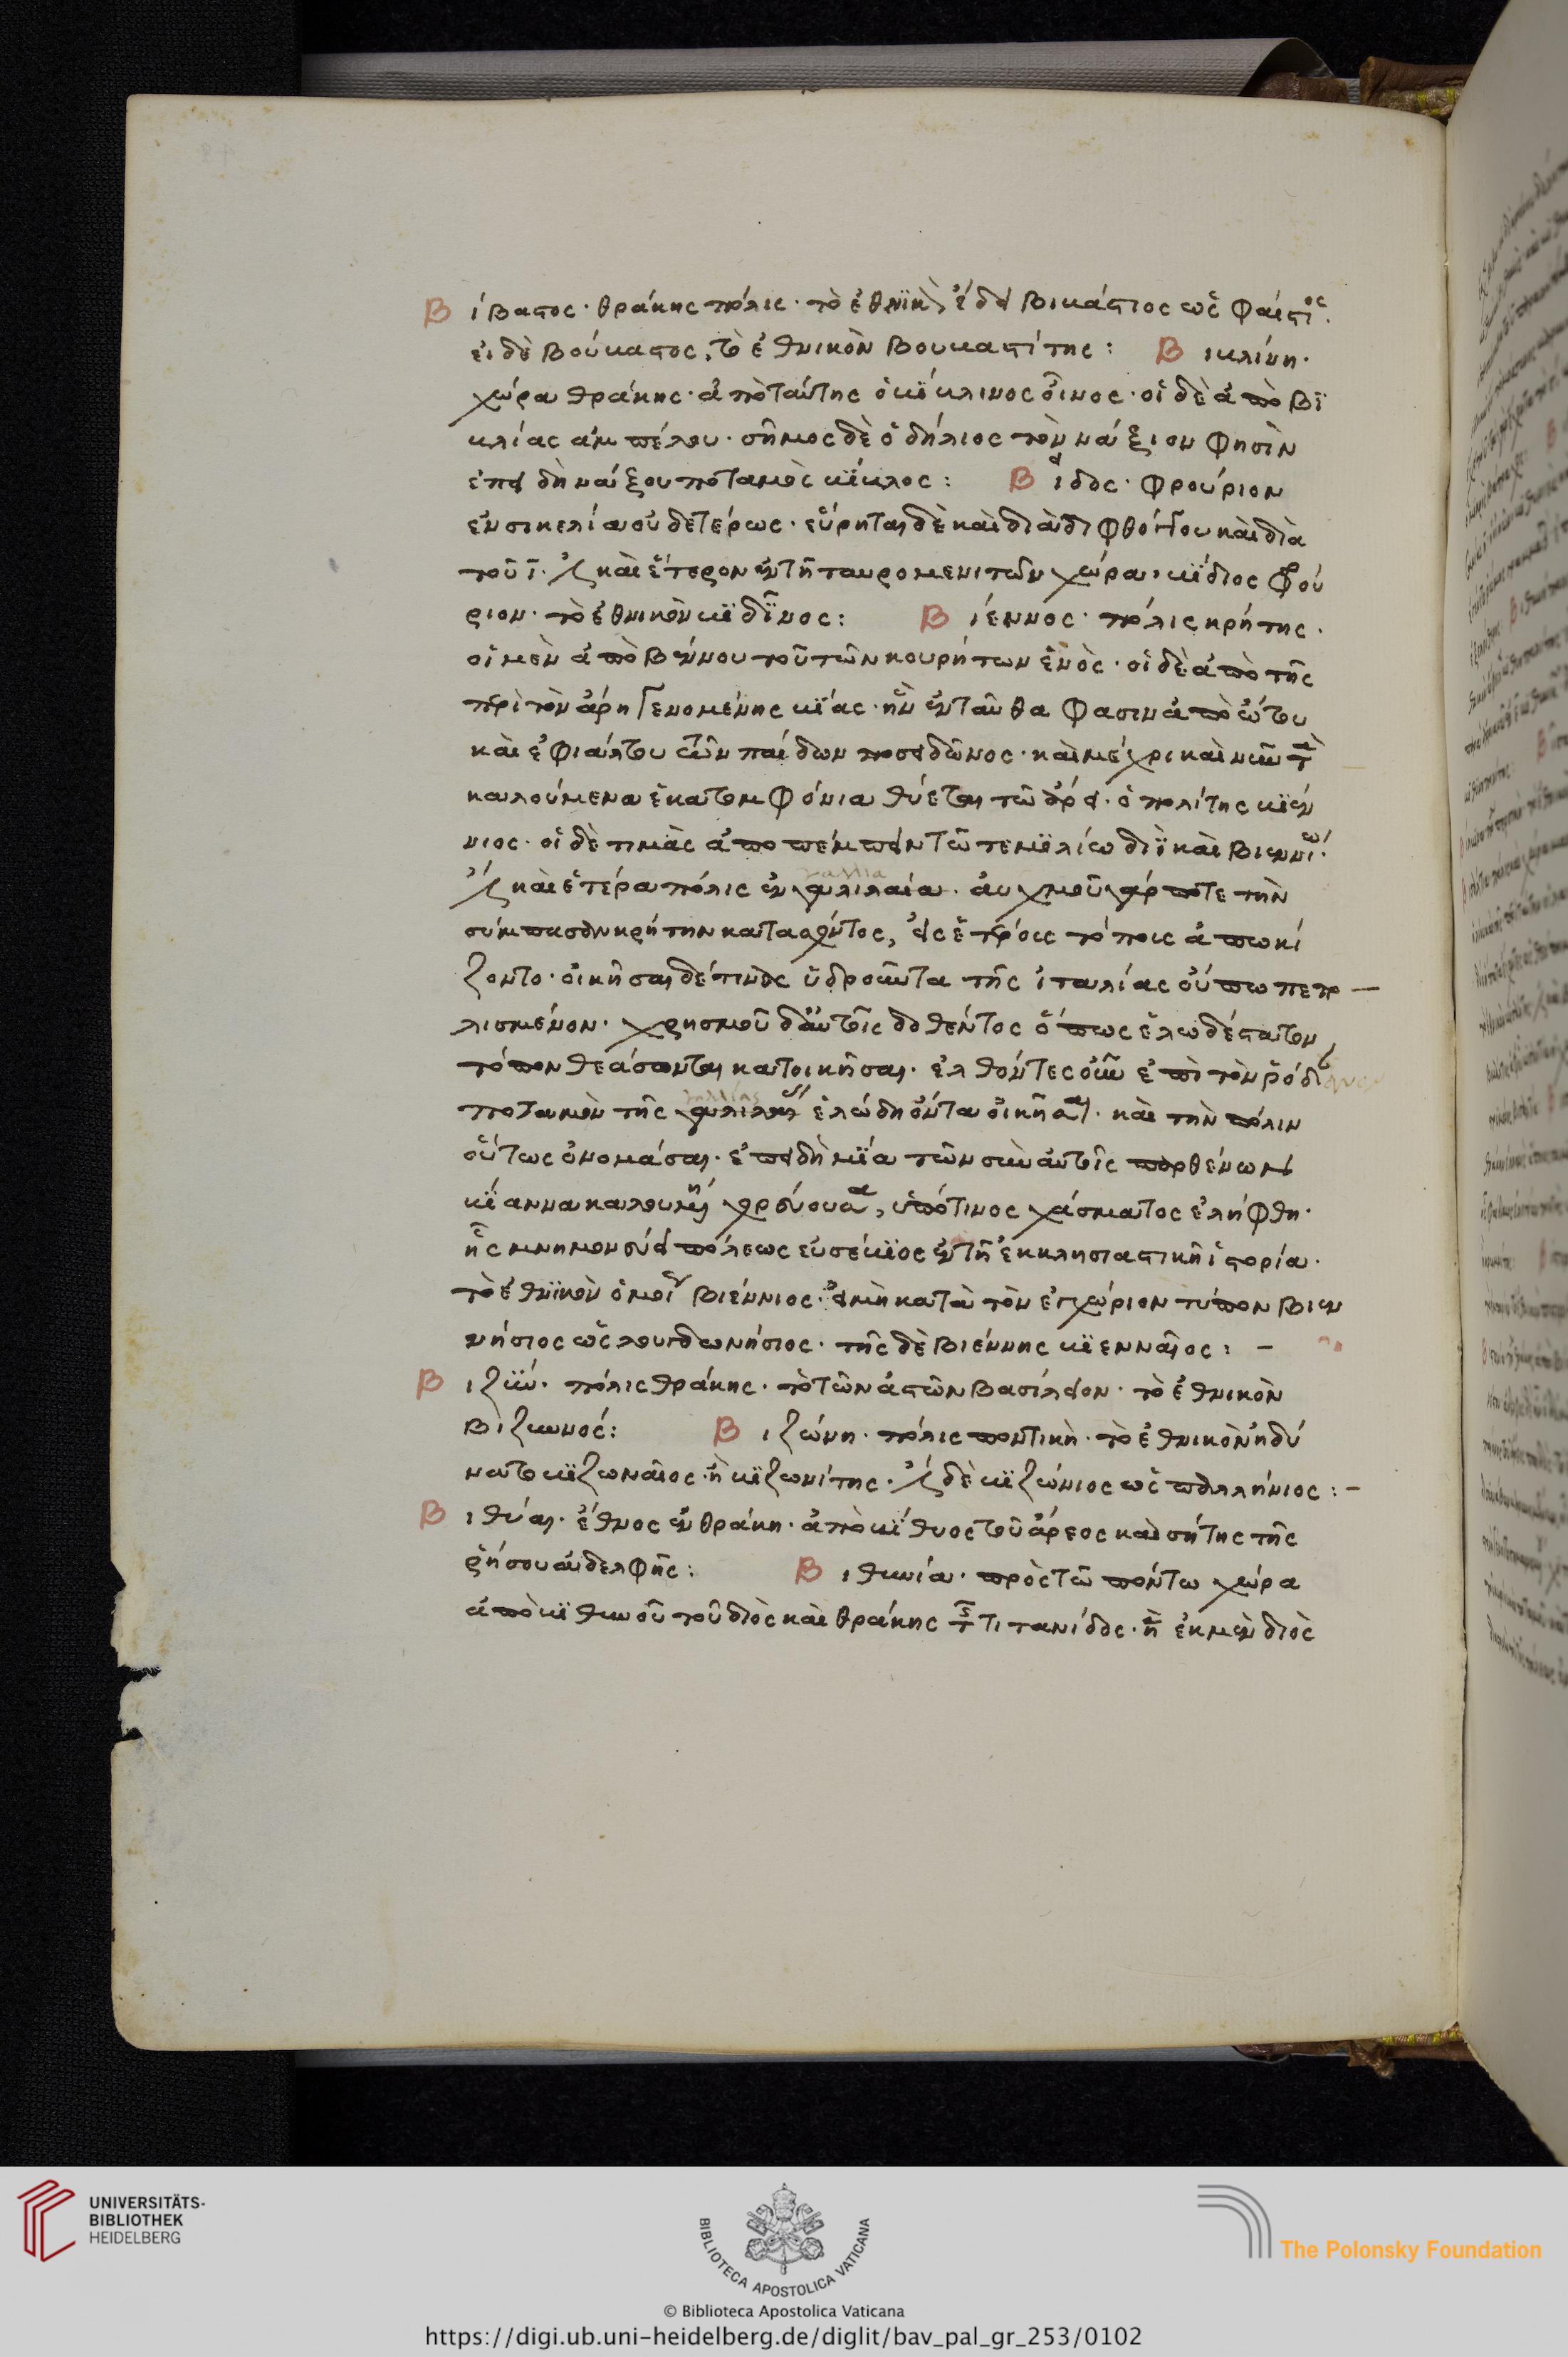 Βίβαστος· θράκης πόλις· τὸ ἐθνικὸν ἔδει Βικάστιος ὡς Φαίστιος.
εἰ δὲ Βούκαστος, τὸ ἐθνικὸν Βουκαστίτης: Βικλίνη·
χώρα θράκης· ἀπὸ ταύτης ὁ βίκλινος οἶνος· οἱ δὲ ἀπὸ Βι
κλίας ἀμπέλου· σῆμος δὲ ὁ δήλιος τὸν νάξιον φησὶν
ἐπεὶ δὴ νάξου ποταμὸς βίκλος: Βίδος· φρούριον
ἐν σικελία οὐδετέρως· εὕρηται δὲ καὶ διὰ διφθόγγου καὶ διὰ
τοῦ ϊ· ἔστι καὶ ἕτερον ἐν τῇ ταυρομενιτῶν χώρα, βίδιος φρού
ριον· τὸ ἐθνικὸν βιδῖνος: Βίεννος· πόλις κρήτης·
οἱ μὲν ἀπὸ Βιέννου τοῦ τῶν κουρήτων ἑνὸς· οἱ δὲ ἀπὸ τῆς
περὶ τὸν ἄρη γενομένης βίας· ἣν ἐνταῦθα φασιν ἀπὸ ὤτου
καὶ ἐφιάλτου τῶν παίδων ποσειδῶνος· καὶ μέχρι καὶ νῦν τὰ
καλούμενα ἑκατομφόνια θύεται τῷ ἄρει· ὁ πολίτης βιέν
νιος· οἱ δὲ τιμὰς ἀποπέμπειν τῷ τεμιλίω διῒ καὶ Βιεννίω·
ἔστι καὶ ἑτέρα πόλις ἐν γαλλία· αὐχμοῦ γάρ ποτε τὴν
σύμπασαν κρήτην κατασχόντος, εἰς ἑτέρους τόπους ἀπωκί
ζοντο· οἰκῆσαι δέ τινας ὑδροῦντα τῆς ἰταλίας οὔπω πεπο –
λισμένον· χρησμοῦ δ' αὐτοῖς δοθέντος ὅπως ἑλωδέστατον
τόπον θεάσονται κατοικῆσαι· ἐλθόντες οὖν ἐπὶ τὸν ῥόδ
ποταμὸν τῆς γαλλίας ἑλώδη ὄντα οἰκῆσαι· καὶ τὴν πόλιν
οὕτως ὀνομάσαι· ἐπειδὴ μία τῶν σὺν αὐτοῖς παρθένων
βίαννα καλουμένη χορεύουσα, ὑπό τινος χάσματος ἐλήφθη·
ἧς μνημονεύει πόλεως εὐσέβιος ἐν τῇ ἐκκλησιαστικῇ ἱστορία·
τὸ ἐθνικὸν ὁμοίως Βιέννιος· εἰ μὴ κατὰ τὸν ἐπιχώριον τύπον Βιεν
νήσιος ὡς λουγδωνήσιος· τῆς δὲ Βιέννης βιενναῖος: –
Βιζύη· πόλις θράκης· τὸ τῶν ἀστῶν βασίλειον· τὸ ἐθνικὸν
Βιζυηνός: Βιζώνη· πόλις ποντικὴ· τὸ ἐθνικὸν ἠδύ
νατο βιζωναῖος ἢ βιζωνίτης· ἔστι δὲ βιζώνιος ὡς παλλήνιος: –
Βιθύαι· ἔθνος ἐν θράκη· ἀπὸ βίθυος τοῦ ἄρεος καὶ σήτης τῆς
ῥήσου ἀδελφῆς: Βιθυνία· πρὸς τῷ πόντω χώρα
ἀπὸ βιθυνοῦ τοῦ διὸς καὶ θράκης τῆς τιτανίδος· ἢ ἐκ μὲν διὸς
UNIVERSITÄTS-
BIBLIOTHEK
HEIDELBERG
BIBLIOTECA APOSTOLICA VATICANA
The Polonsky Foundation
© Biblioteca Apostolica Vaticana
https://digi.ub.uni-heidelberg.de/diglit/bav_pal_gr_253/0102